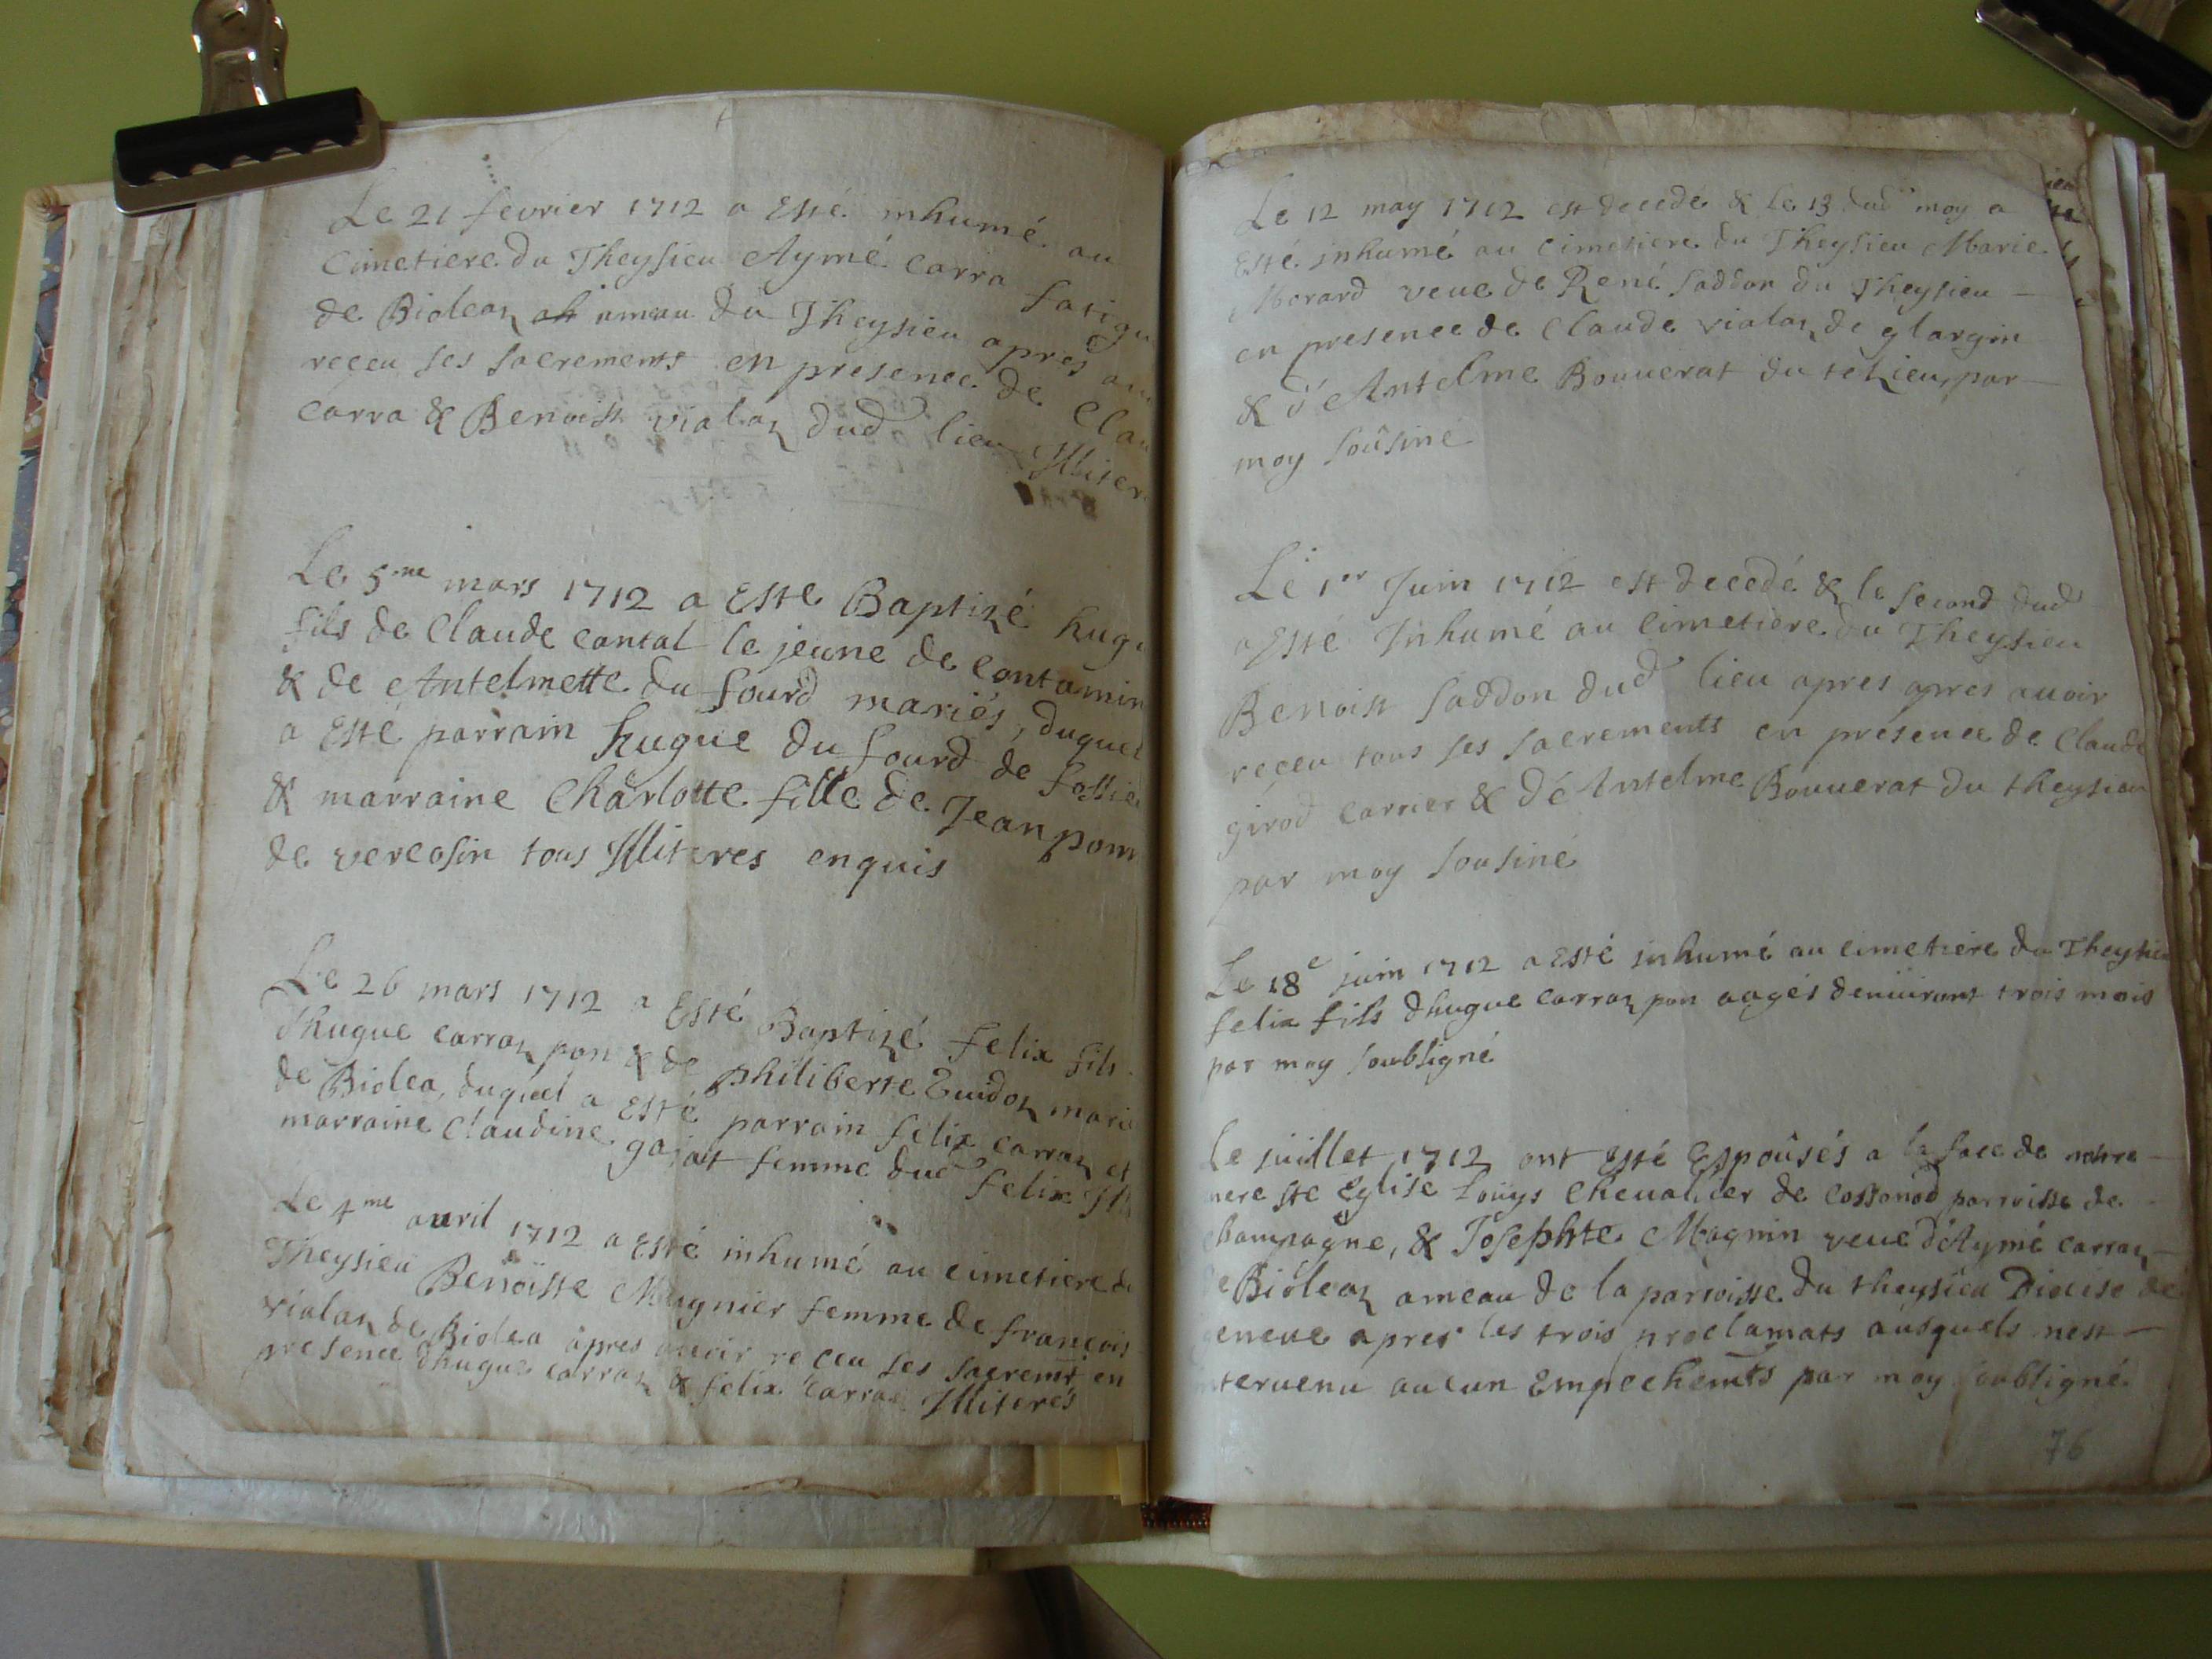 Le 21 fevrier 1712 a Esté inhumé au
Cimetiere du Theysieu Aymé Carra
de Bioleaz ameau du Theysieu apres
reçeu ses sacrements en presence de Clau
Carra & Benoist vialaz dud lieu Illiter
Le 5me mars 1712 a Esté Baptizé hugu
fils de Claude Cantal le jeune de Contamin
& de Antelmette du Sourd mariés, duquel
a Esté parrain hugue du Sourd de
& marraine Charlotte fille de Jean pom
de vercosin tous Illiteres enquis
Le 26 mars 1712 a Esté Baptizé Felix fils
d'hugue Carraz pan & de philiberte Guidoz marié
de Biolea, duquel a Esté parrain felix Carraz et
marraine Claudine gojat femme dud Felix Ill
Le 4me avril 1712 a Esté inhumé au cimetiere du
Theysieu Benoiste Mugnier femme de françois
vialaz de Biolea apres avoir reçeu ses sacremt en
presence d'hugue Carraz & felix Carraz Illiterés
Le 12 may 1712 est decedé & le 13 dud moy a
Esté inhumé au cimetiere du Theysieu Marie
Morard veue de René Saddon du Theysieu
en presence de Claude vialaz de glargin
& d'Antelme Bouuerat du lieu, par
moy soûsiné
Le 1er Juin 1712 est decedé & le second dud
a Esté Inhumé au Cimetiere du Theysieu
Benoist Saddon dud lieu apres apres auoir
reçeu tous ses sacrements en presence de Claude
girod Carrier & d'Antelme Bouuerat du theysieu
par moy sousiné
Le 18e juin 1712 a Esté inhumé au cimetiere du Theysieu
felix fils d'hugue Carraz pan aagés denuiront trois mois
par moy soubsigné
Le juillet 1712 ont Esté Espoûsés a la face de notre
mere ste Eglise Loüys Chevallier de Cossonod parroisse de
Champagne, & Josephte Magnin veue d'Aymé Carraz
de Bioleaz ameau de la parroisse du theysieu Diocise de
geneue apres les trois proclamats ausquels nest
interuenu aucun Empechemts par moy soubsigné
76